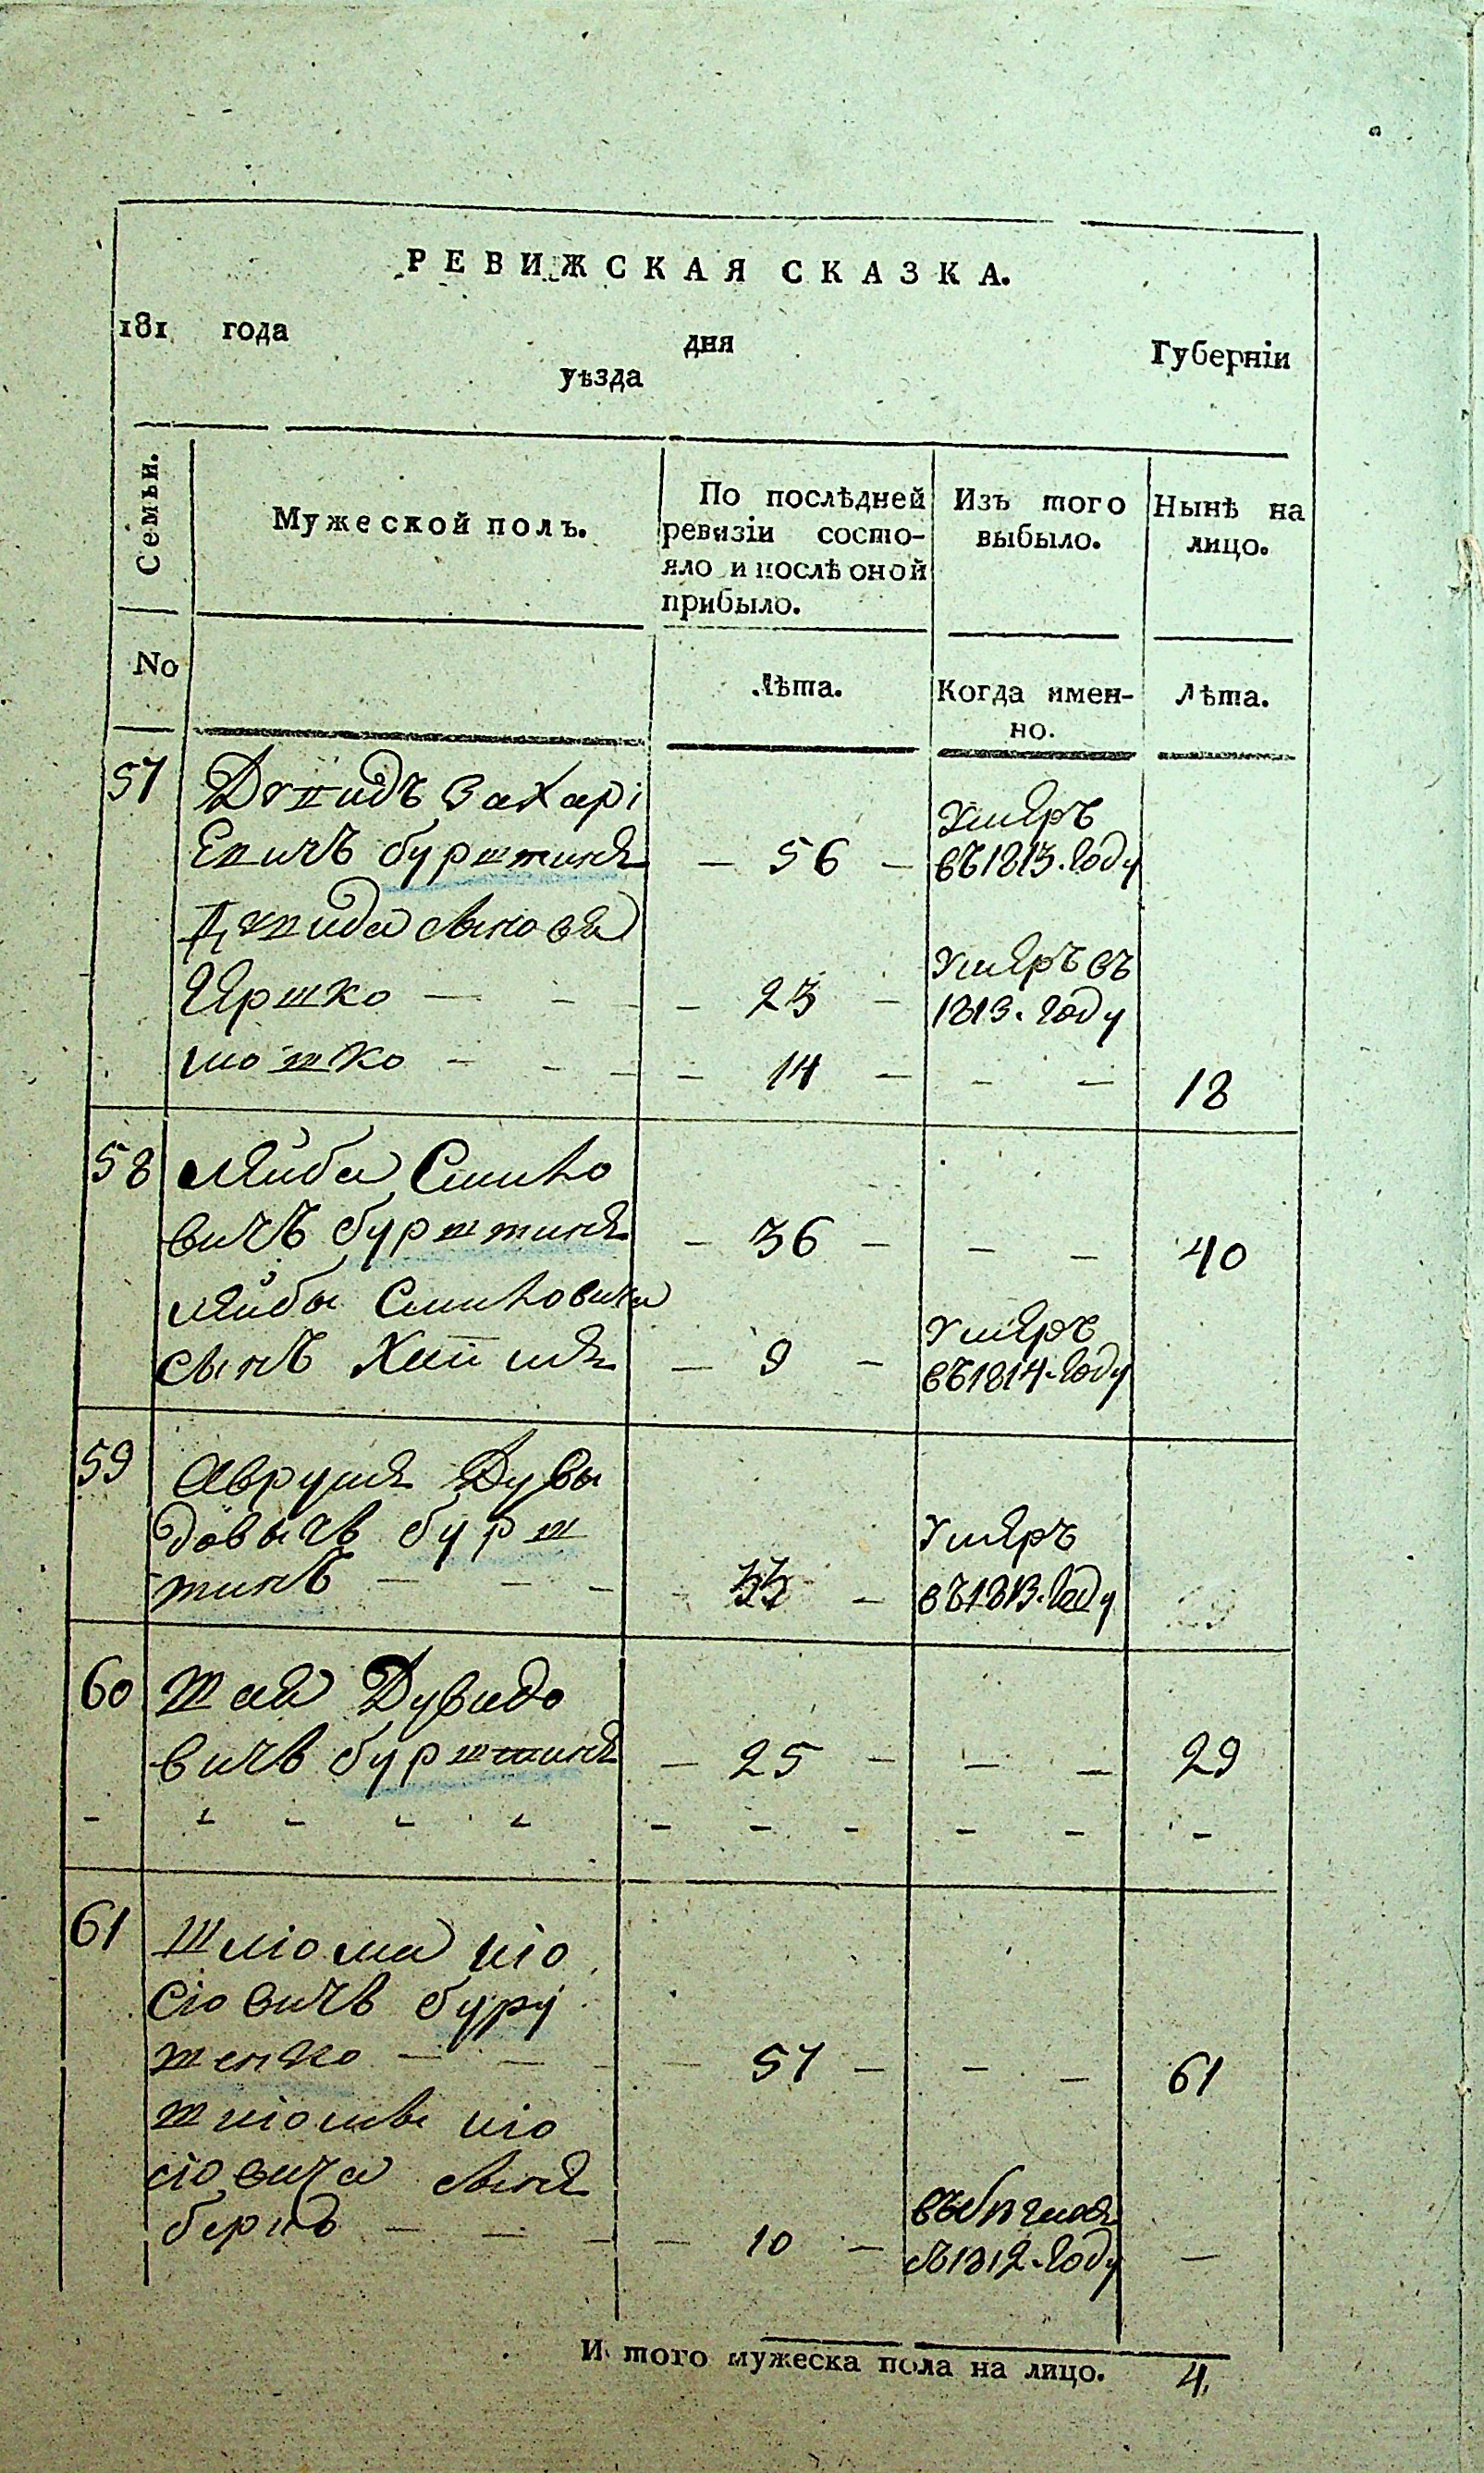 РЕВИЖСКАЯ СКАЗКА.
181 года дня Губернїи
уѣзда
Семьи.
Мужеской полъ.
По послѣдней ревизїи состояло и послѣ оной прибыло.
Изъ того выбыло.
Нынѣ на лицо.
No
Лѣта.
Когда именно.
Лѣта.
57 Дувидъ Захарі
евичъ бурштинъ — 56 — Умеръ въ 1813. году
Дувида сынова
Иршко — — — 23 — Умеръ въ 1813. году
мошко — — — 14 — — — 18
58 Лейба Симхо
вичъ бурштинъ — 36 — — — 40
Лейбы Симховича
сынъ Хаим — 9 — Умеръ въ 1814. году
59 Аврумъ Дувы
довычъ бурш
тинъ — — — 33 — Умеръ въ 1813. году
60 Шая Дувидо
вичъ бурштинъ — 25 — — — 29
61 Шліома іо
сіовичъ бур
штенко — — — 57 — — — 61
шліомы іо
сіовича сынъ
берко — — — 10 — 1812. году —
И того мужеска пола на лицо. 4.